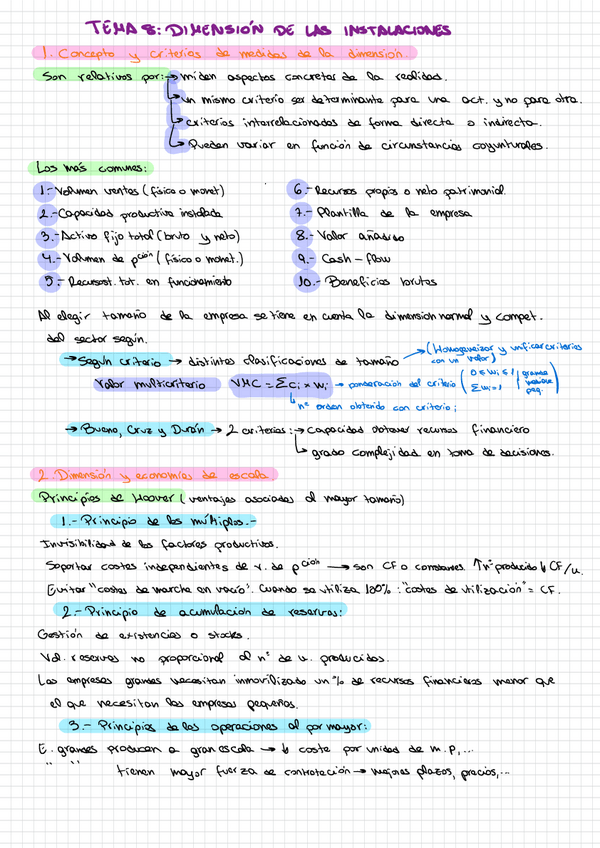 TEMA 8: DIMENSIÓN DE LAS INSTALACIONES
1. Concepto y criterios de medidas de la dimensión.
Son relativos por: → miden aspectos concretos de la realidad.
→ un mismo criterio ser determinante para una act. y no para otra.
→ criterios interrelacionados de forma directa o indirecta.
→ Pueden variar en función de circunstancias coyunturales.
Los más comunes:
1.- Volumen ventas (físico o monet)
2.- Capacidad productiva instalada
3.- Activo fijo total (bruto y neto)
4.- Volumen de pción (físico o monet.)
5.- Recursost. tot. en funcionamiento
6.- Recursos propios o neto patrimonial.
7.- Plantilla de la empresa
8.- Valor añadido
9.- Cash-flow
10.- Beneficios brutos
Al elegir tamaño de la empresa se tiene en cuenta la dimension normal y compet.
del sector según.
→ Según criterio → distintas clasificaciones de tamaño → (Homogeneizar y unificar criterios
con un valor)
Valor multicriterio VMC = Σci × wi → ponderación del criterio ( 0 ≤ wi ≤ 1 Σwi = 1 | grande mediana peq. )
↳ nº orden obtenido con criterio i
→ Bueno, Cruz y Durán → 2 criterios: → capacidad obtener recursos financiero
→ grado complejidad en toma de decisiones.
2. Dimensión y economías de escala.
Principios de Hoover (ventajas asociadas al mayor tamaño)
1.- Principio de los múltiplos.-
Invisibilidad de los factores productivos.
Soportar costes independientes de v. de pción → son CF o constantes. ↑nº producido ↓ CF/u.
Evitar "costes de marcha en vacío". Cuando se utiliza 100%: "costes de utilización" = CF.
2.- Principio de acumulación de reservas:
Gestión de existencias o stocks.
Vol. reservas no proporcional al nº de u. producidos.
Las empresas grandes necesitan inmovilizado un % de recursos financieros menor que
el que necesitan las empresas pequeñas.
3.- Principios de las operaciones al por mayor:
E. grandes producen a gran escala → ↓ coste por unidad de m.p,...
" " tienen mayor fuerza de contratación → mejores plazos, precios,...